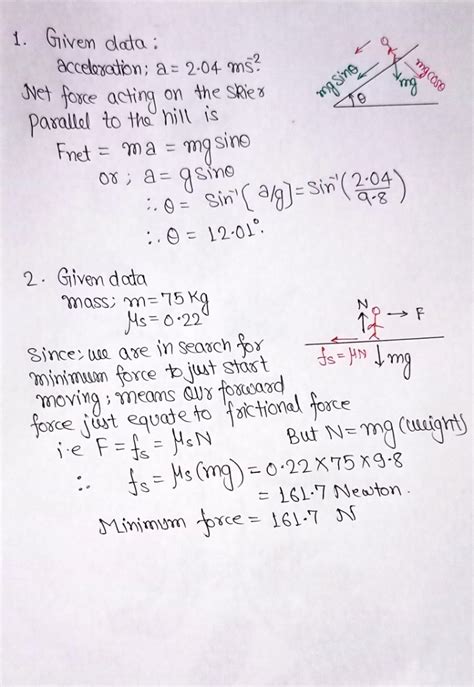 1. Given data:
acceleration; a = 2.04 ms⁻².
Net force acting on the skier
parallel to the hill is
Fnet = ma = mg sinθ
or; a = g sinθ
∴ θ = Sin⁻¹[a/g] = Sin⁻¹(2.04/9.8)
∴ θ = 12.01°.
mg sinθ
mg
mg cosθ
θ
2. Given data
mass; m = 75 Kg
μs = 0.22
Since; we are in search for
minimum force to just start
moving; means our forward
force just equate to frictional force
i.e F = fs = μsN
But N = mg (weight)
∴ fs = μs(mg) = 0.22 × 75 × 9.8
= 161.7 Newton.
Minimum force = 161.7 N
N
F
fs = μN
mg